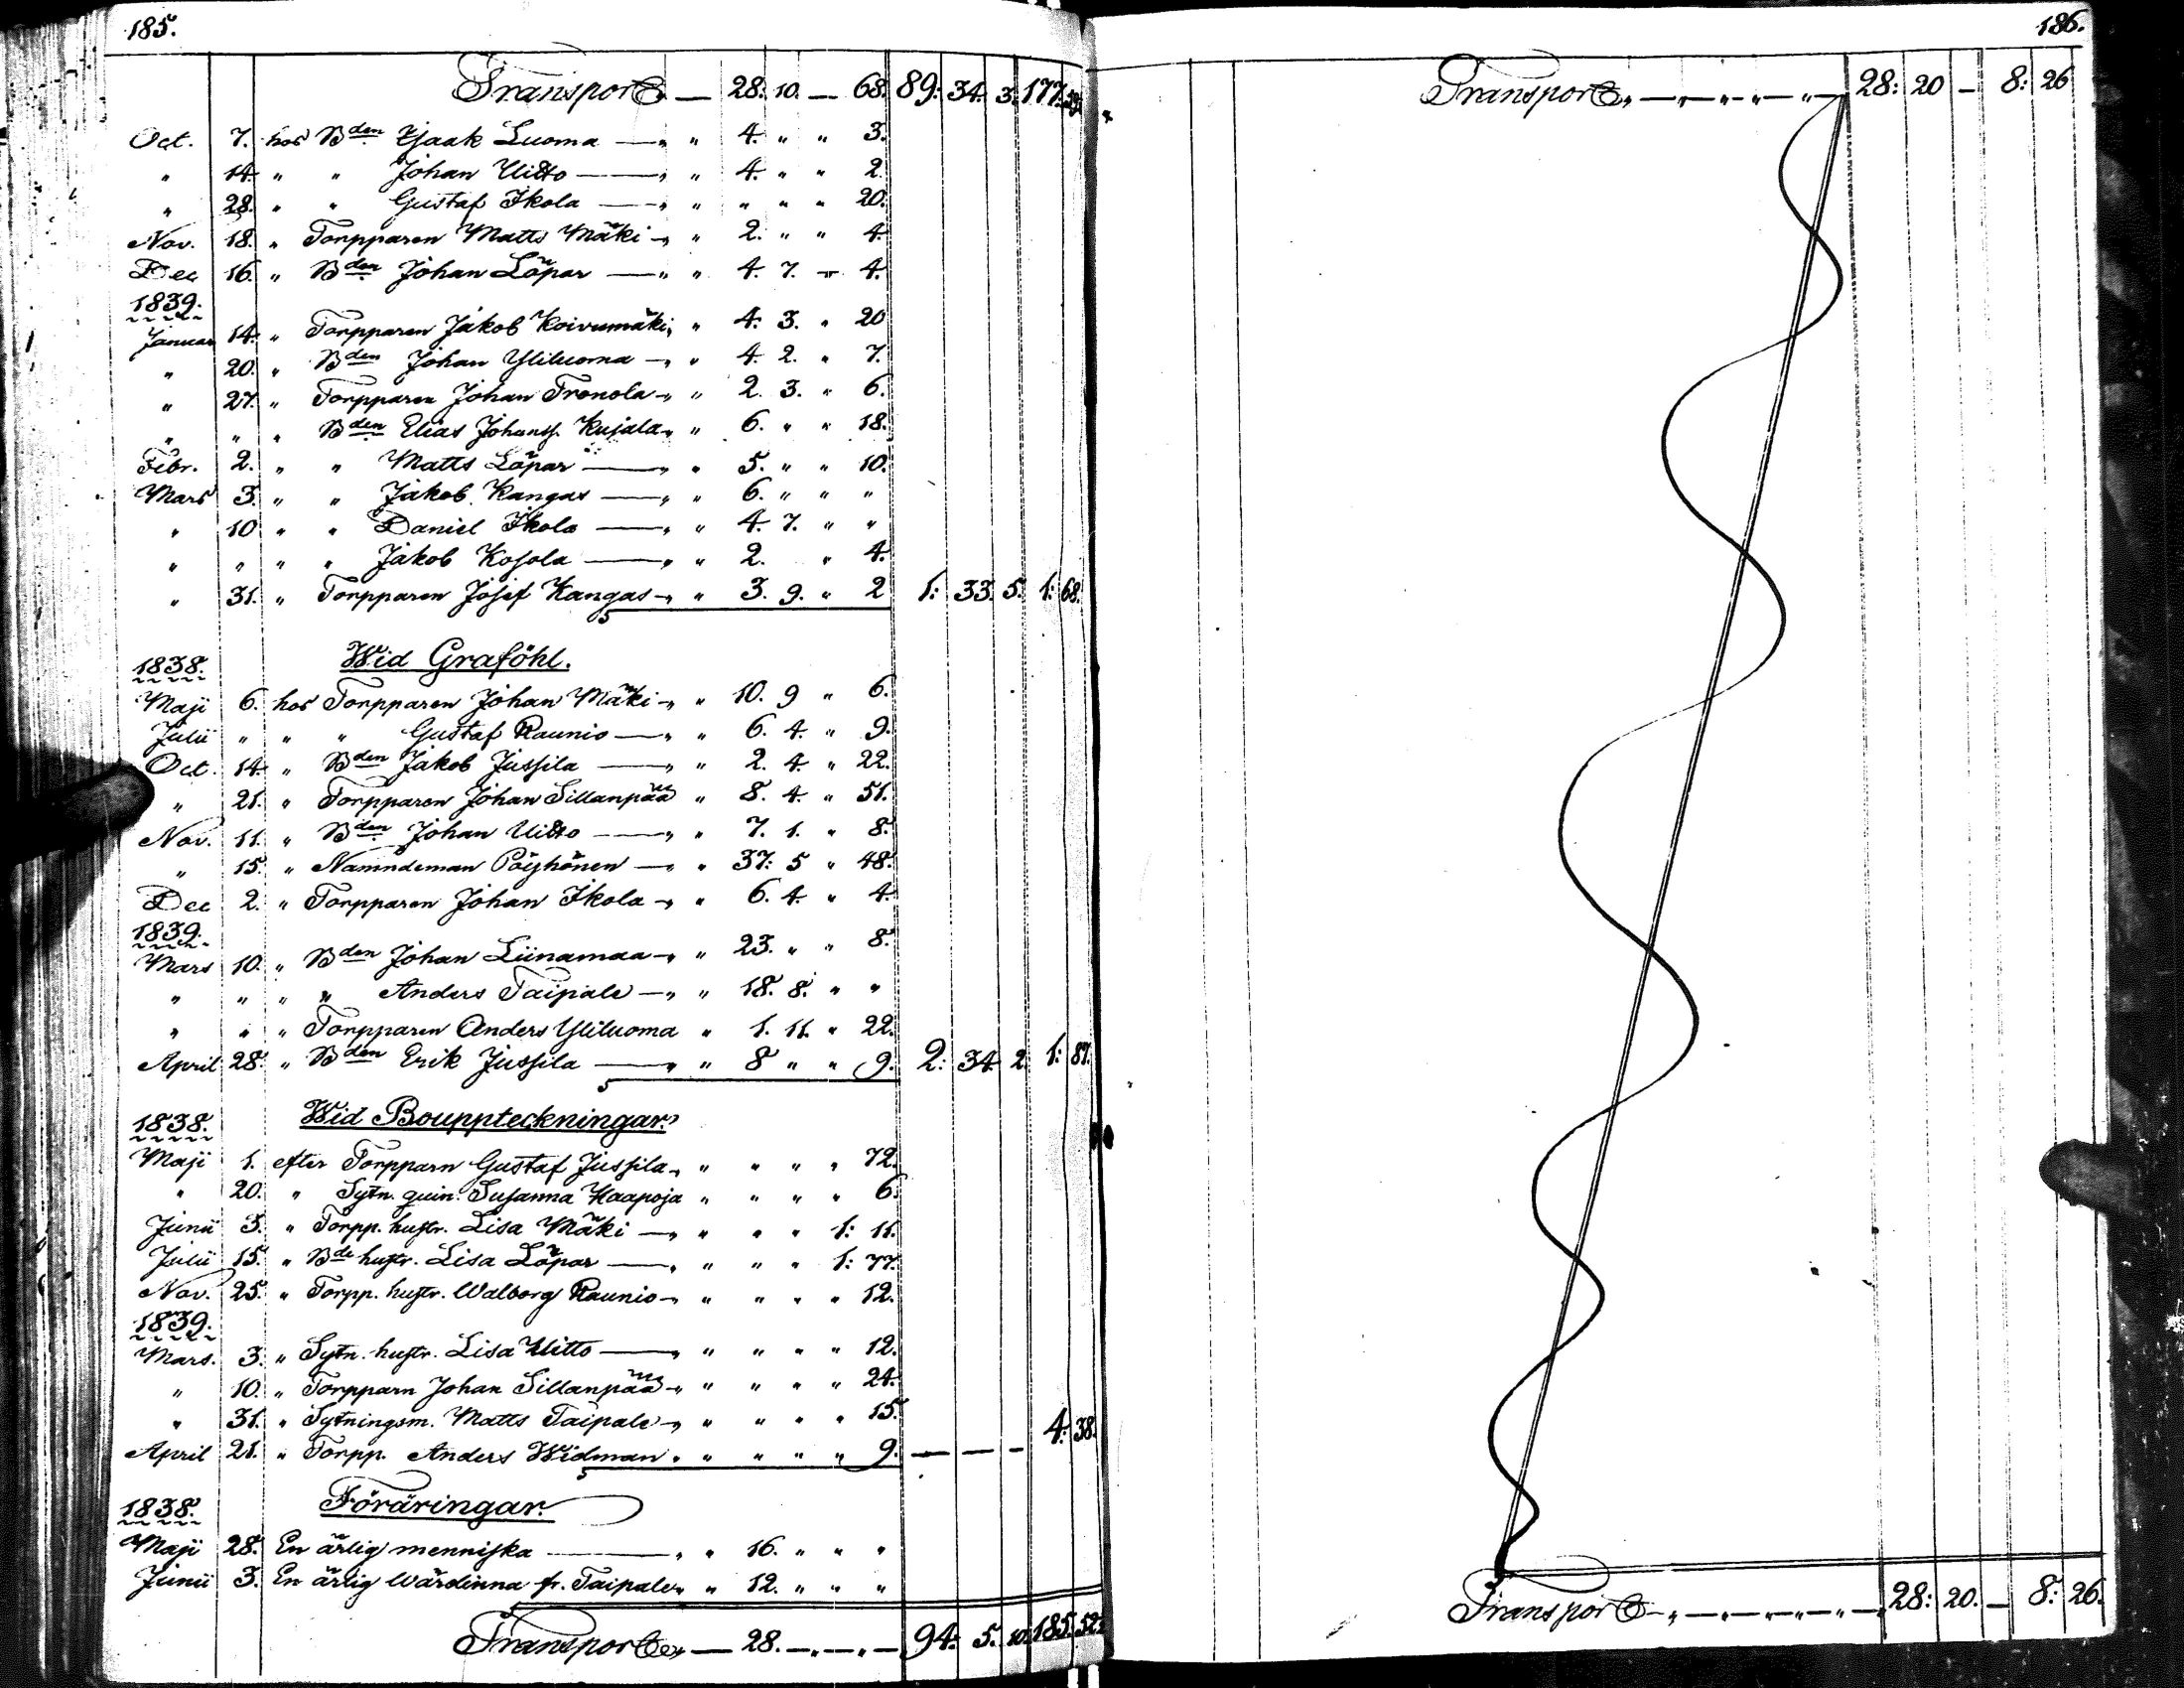 185.
Transport — 28. 10. — 68. 89. 34. 3. 177.
Oct. 7. hos Bden Isaak Luoma — " " 4. " " 3.
" 14. " " Johan Uitto — " " 4. " " 2.
" 28. " " Gustaf Ikola — " " " " " 20.
Nov. 18. " Torpparen Matts Mäki — " " 2. " " 4.
Dec 16. " Bden Johan Löpar — " " 4. 7. — 4.
1839.
Januar 14. " Torpparen Jakob Koivumäki " " 4. 3. " 20
" 20. " Bden Johan Yliluoma — " " 4. 2. " 7.
" 27. " Torpparen Johan Tronola — " " 2. 3. " 6.
" " " Bden Elias Johanss. Kujala " " 6. " " 18.
Febr. 2. " " Matts Löpar — " " 5. " " 10.
Mars 3. " " Jakob Kangas — " " 6. " " "
" 10 " " Daniel Ikola — " " 4. 7. " "
" " " " Jakob Kosola — " " 2. " 4.
" 31. " Torpparen Josef Kangas — " " 3. 9. " 2 1: 33. 5. 1: 68.
1838. Wid Graföhl.
Maji 6. hos Torpparen Johan Mäki — " " 10. 9 " 6.
Julii " " " Gustaf Raunio — " " 6. 4. " 9.
Oct. 14. " Bden Jakob Jussila — " " 2. 4. " 22.
" 21. " Torpparen Johan Sillanpää " 8. 4. " 51.
Nov. 11. " Bden Johan Uitto — " " 7. 1. " 8.
" 15. " Nämndeman Pöyhönen — " " 37: 5 " 48.
Dec 2. " Torpparen Johan Ikola — " " 6. 4. " 4.
1839.
Mars 10. " Bden Johan Liinamaa — " " 23. " " 8.
" " " " Anders Taipale — " " 18. 8. " "
" " " Torpparen Anders Yliluoma " 1. 11. " 22.
April 28. " Bden Erik Jussila — " " 8 " " 9. 2: 34. 2. 1: 87.
1838. Wid Bouppteckningar.
Maji 1. efter Torpparn Gustaf Jussila " " " " " 72.
" 20. " Sytn. quin. Susanna Haapoja " " " " 6.
Junii 3. " Torpp. hustr. Lisa Mäki — " " " " 1: 11.
Julii 15. " Bde hustr. Lisa Löpar — " " " " 1: 77.
Nov. 25. " Torpp. hustr. Walborg Raunio — " " " " " 12.
1839.
Mars. 3. " Sytn. hustr. Lisa Uitto — " " " " " 12.
" 10. " Torpparn Johan Sillanpää — " " " " " 24.
" 31. " Sytningsm. Matts Taipale — " " " " " 15. 4: 38.
April 21. " Torpp. Anders Widman " " " " " 9. — — —
1838. Föräringar.
Maji 28. En ärlig menniska — " " 16. " " "
Junii 3. En ärlig Wärdinna fr. Taipale " " 12. " " "
Transport — 28. — " — " — 94: 5. 10. 185. 52.
186.
Transport " — " — " — " — 28: 20 — 8: 26
Transport — " — " — " — " — 28: 20. — 8: 26.